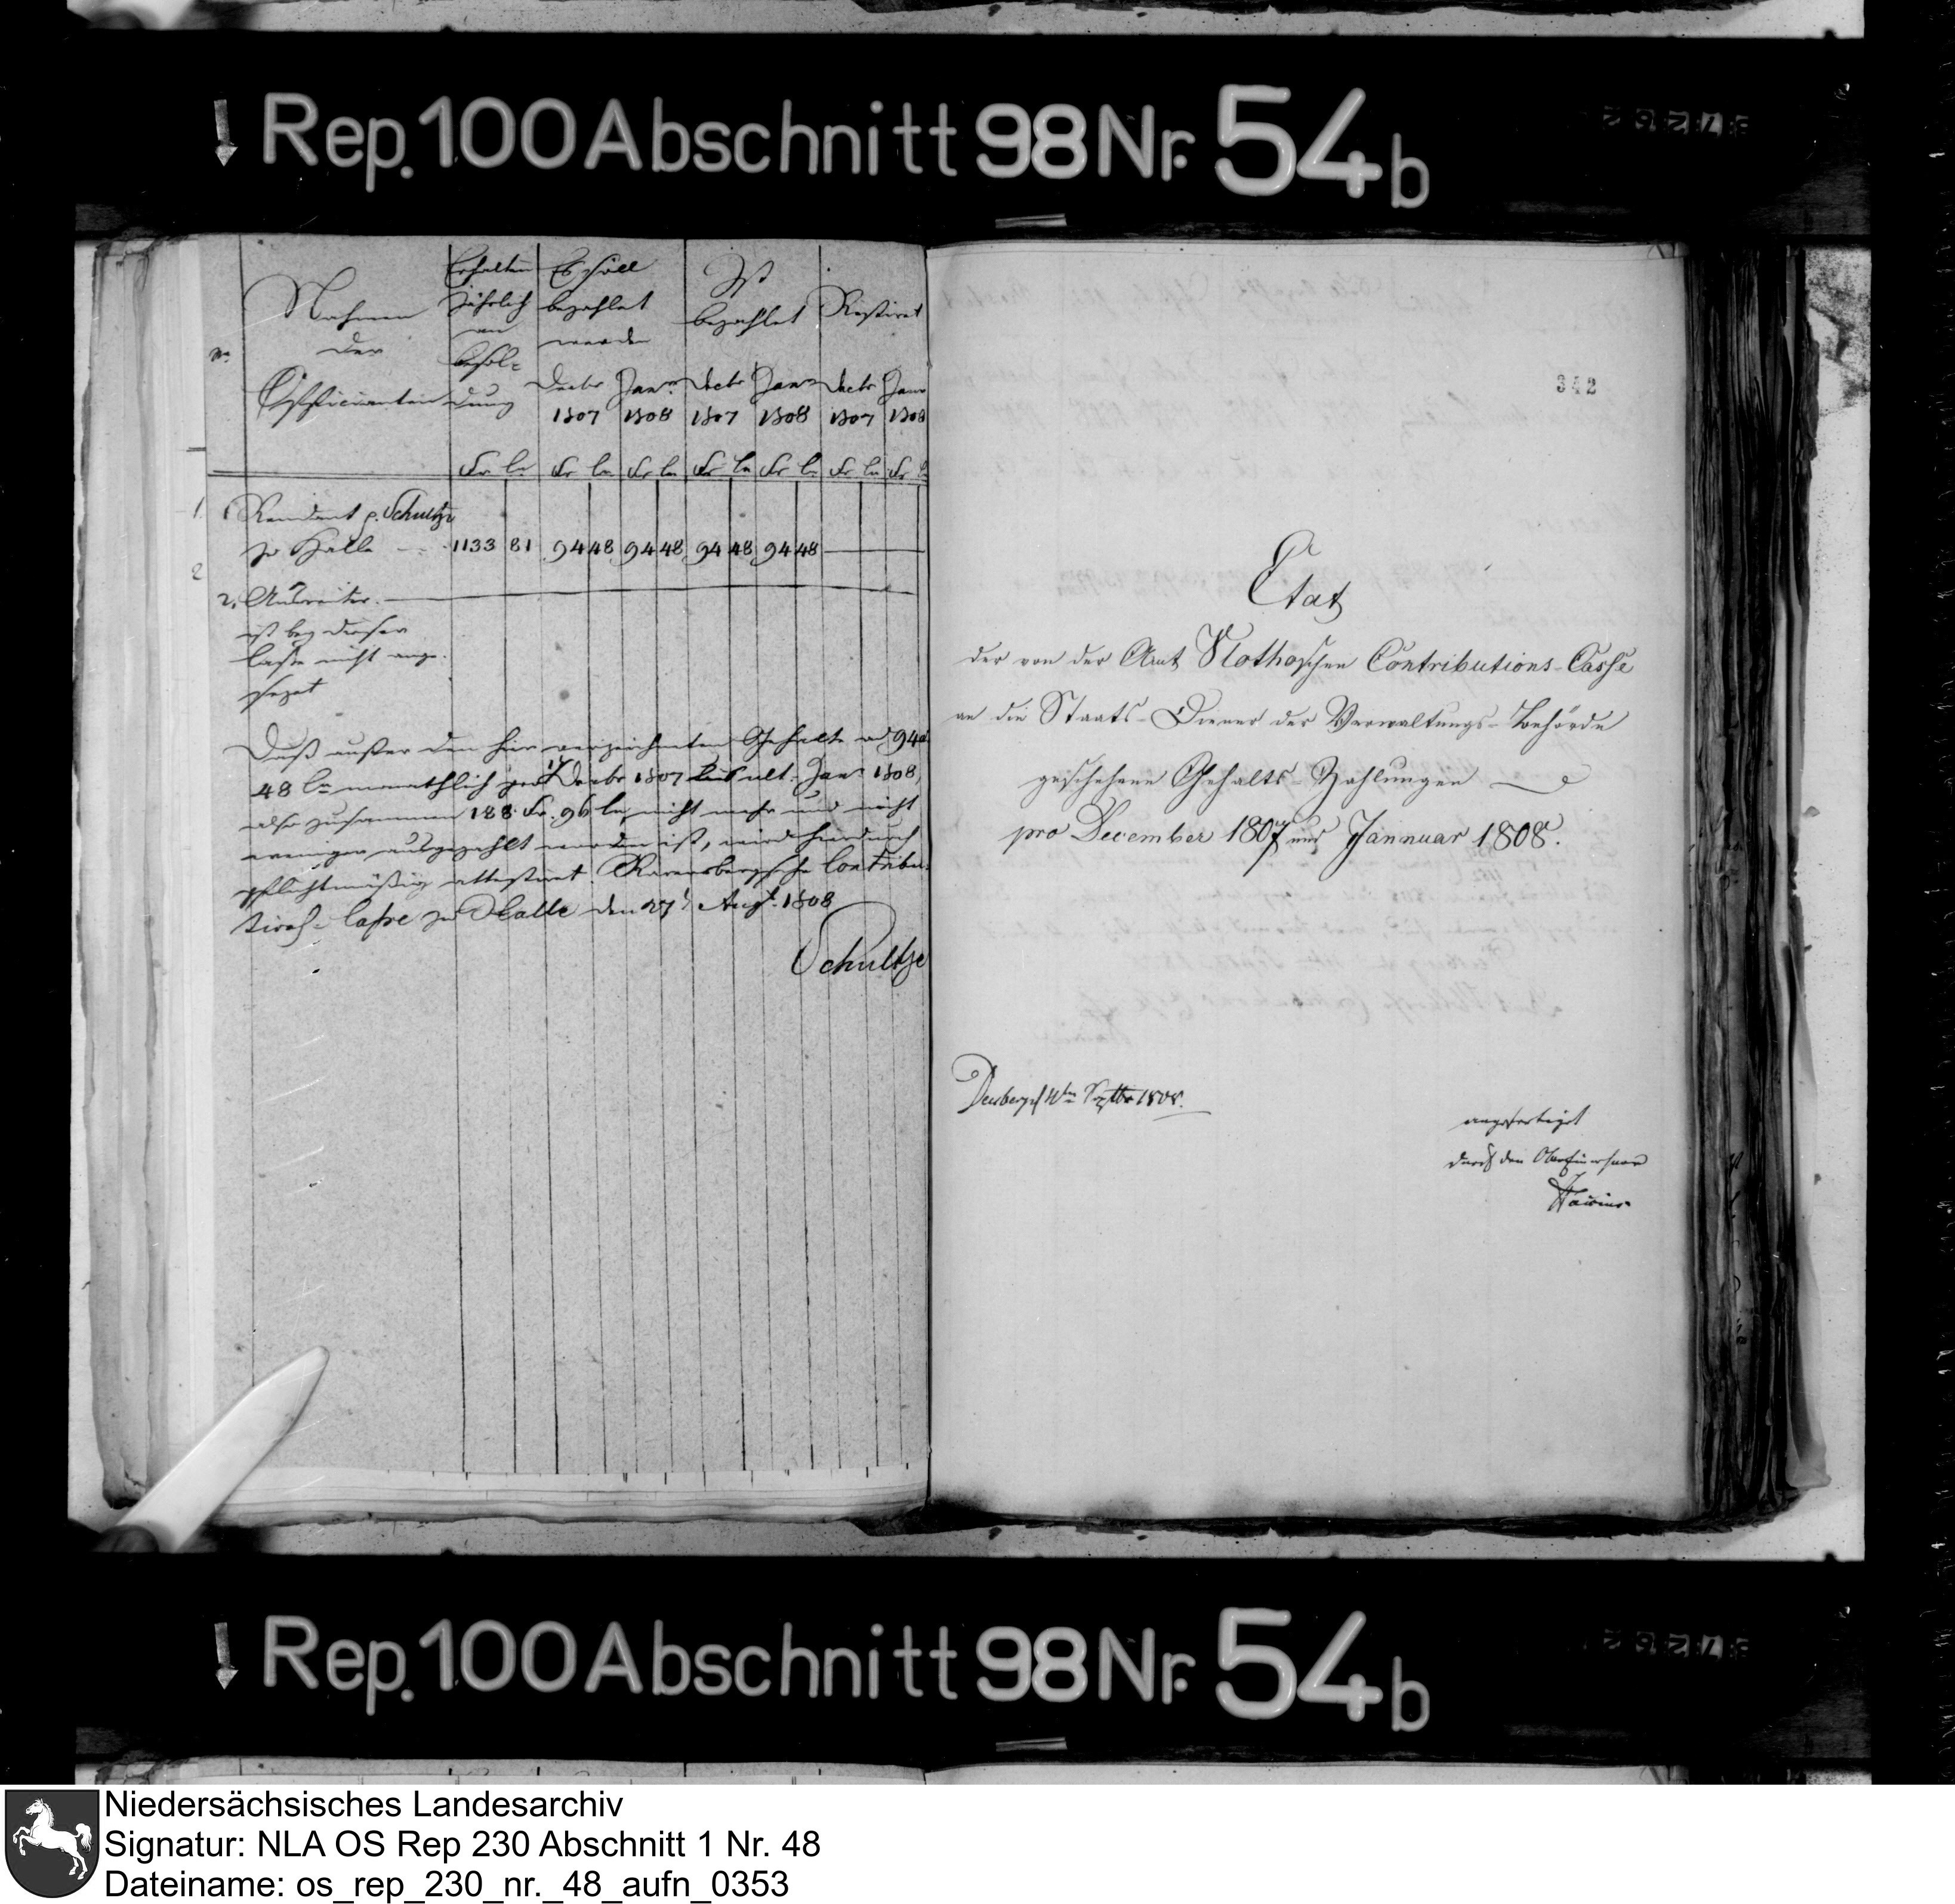 Rep. 100 Abschnitt 98 Nr. 54b
Nahmen
der
Officianten
Erhalten
jährlich
an
Besol-
dung
Es soll
bezahlet
werden
Ist
bezahlet
Restiret
No
Decbr Janr Decbr Janr Decbr Janr
1807 1808 1807 1808 1807 1808
Fr Cn Fr Cn Fr Cn Fr Cn Fr Cn Fr Cn Fr
1. Rendant p. Schultze
zu Halle 1133 81 94 48 94 48 94 48 94 48
2. Ausreiter.
ist bey dieser
Casse nicht ange-
setzet
Daß außer den hier verzeichneten Gehalte ad 94
48 Cn monathlich pro Decbr 1807 bis ult. Janr 1808,
also zusammen 188 Fr. 96 Cn nicht mehr und nicht
weniger ausgezahlt worden ist, wird hierdurch
pflichtmäßig attestiret. Ravensbergsche Contribu-
tions-Casse zu Halle den 27t Augt. 1808
Schultze
342
Etat
der von der Amt Vlothoschen Contributions-Casse
an die Staats-Diener der Verwaltungs-Behörde
geschehene Gehalts-Zahlungen
pro December 1807 und Jannuar 1808.
Septbr 1808.
angefertiget
durch den
Rep. 100 Abschnitt 98 Nr. 54b
Niedersächsisches Landesarchiv
Signatur: NLA OS Rep 230 Abschnitt 1 Nr. 48
Dateiname: os_rep_230_nr._48_aufn_0353